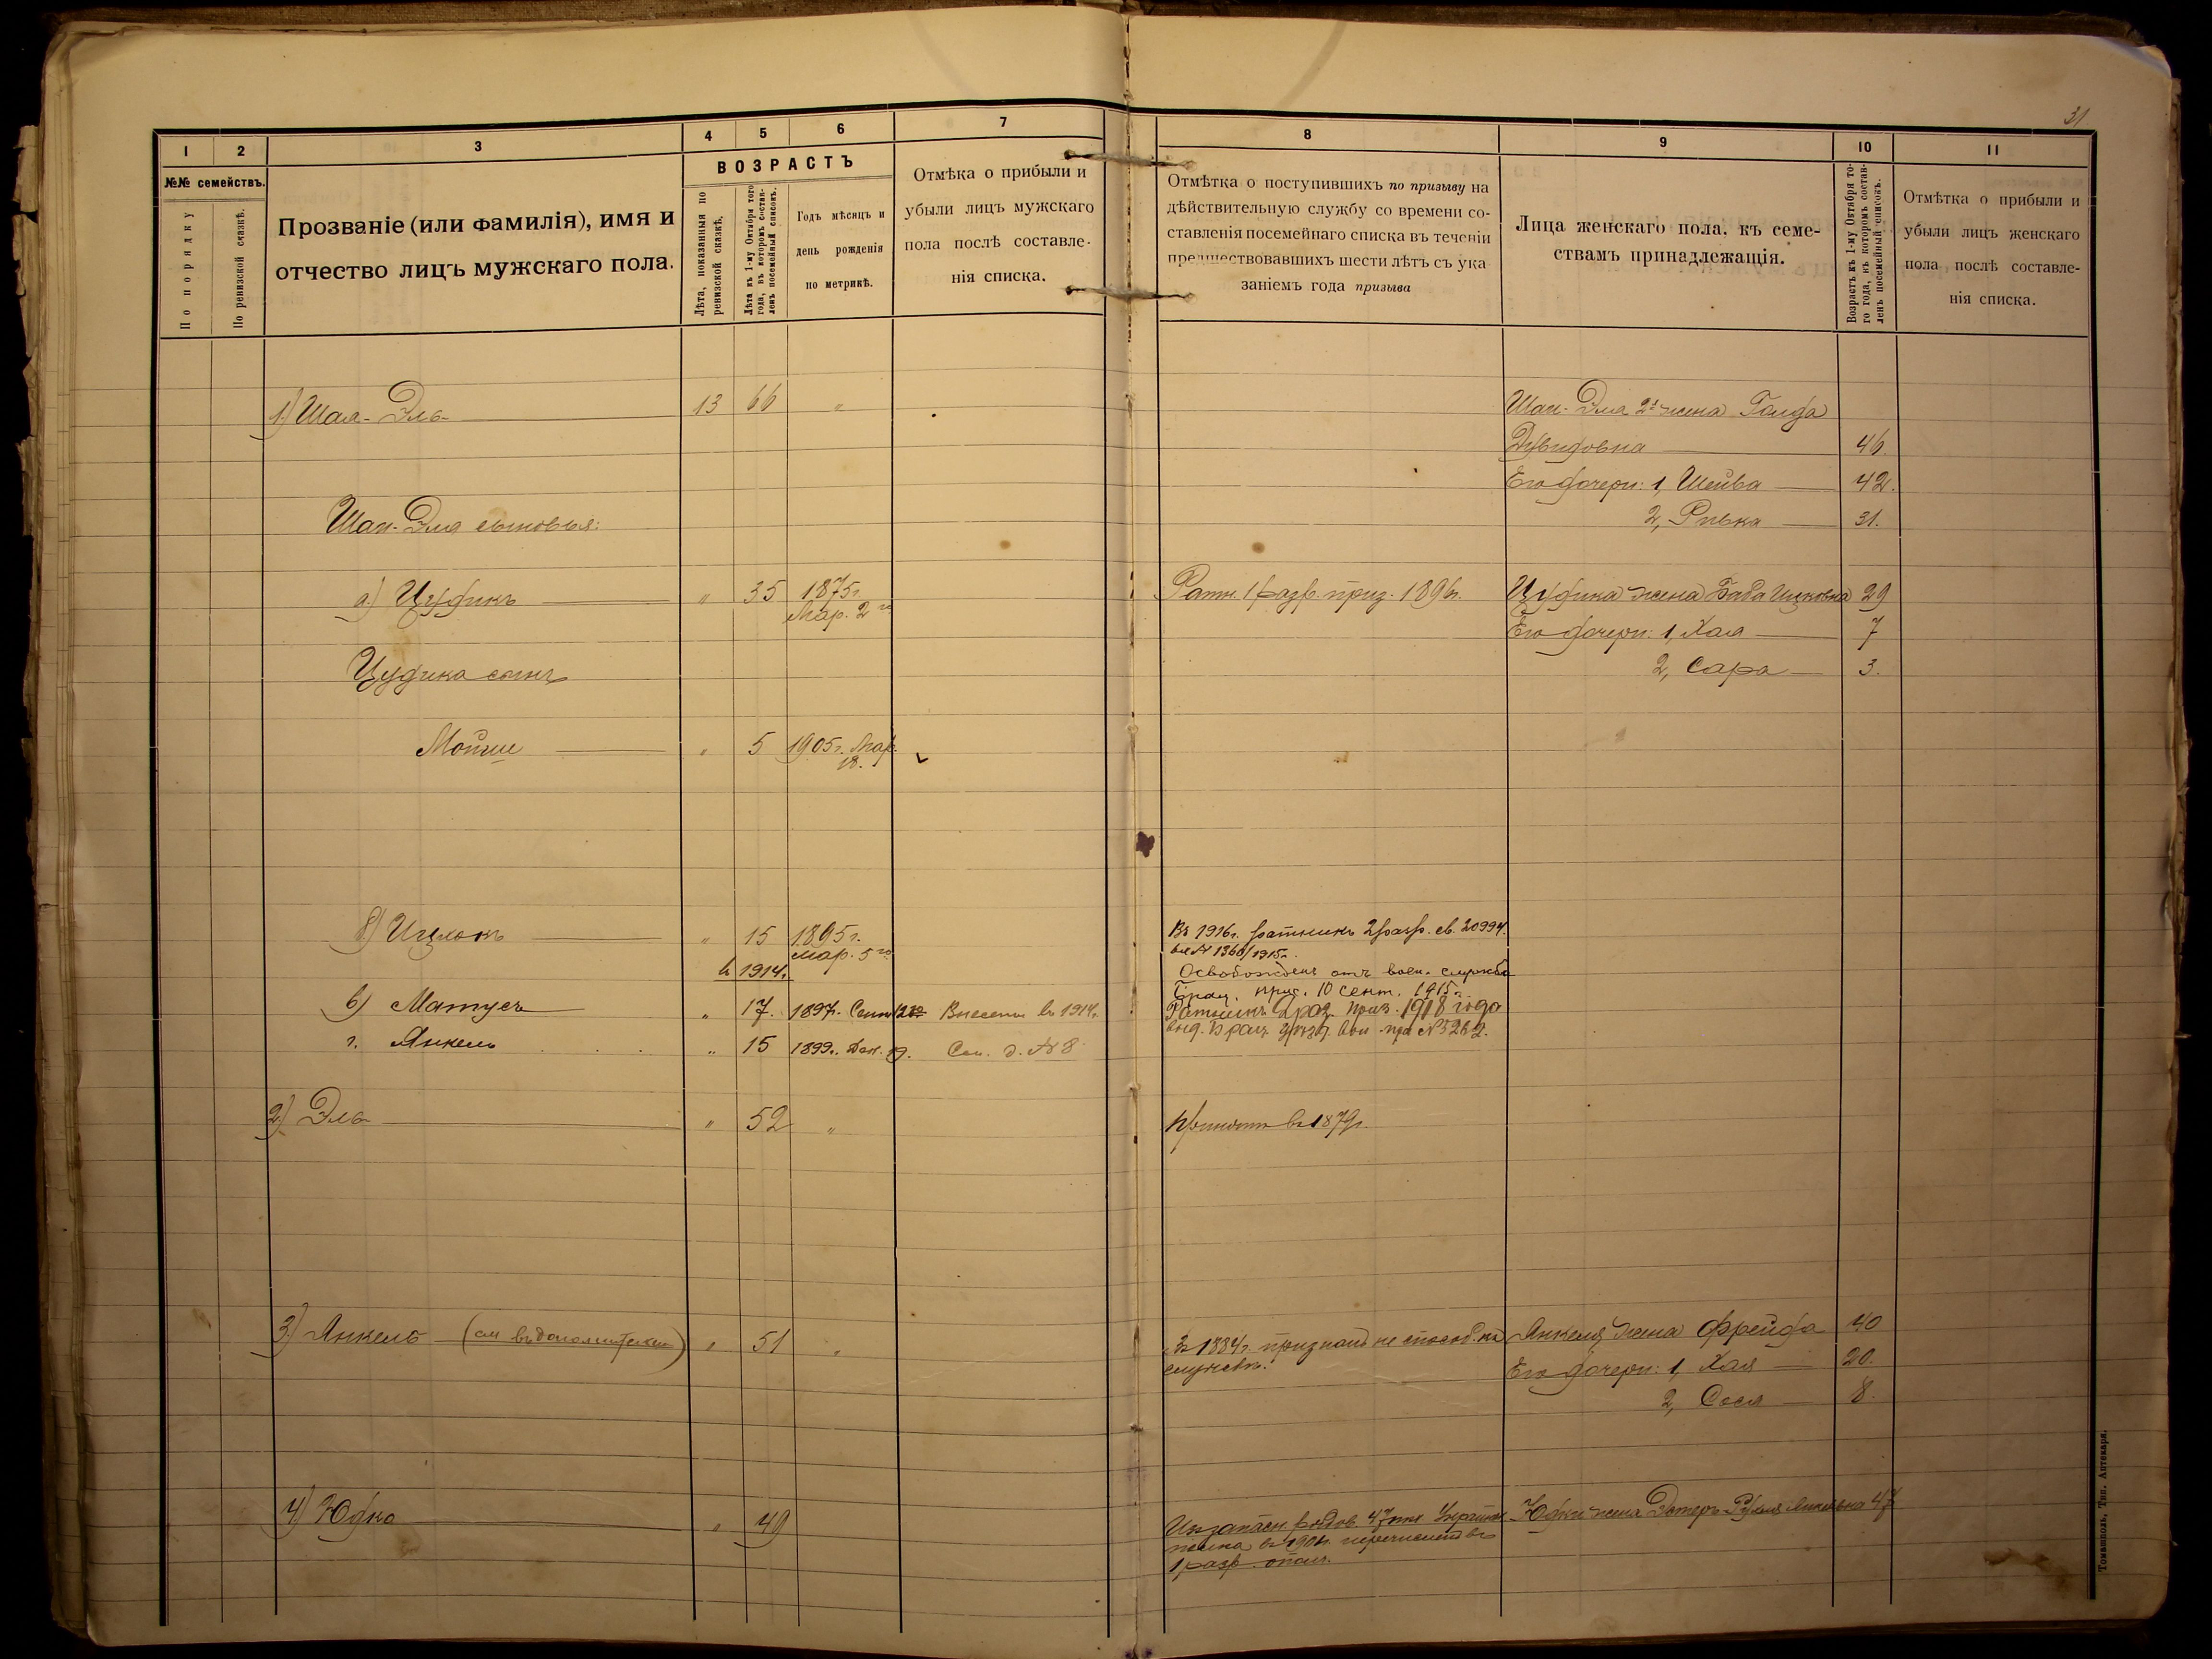 31
1 2 3 4 5 6 7
№№ семействъ.
По порядку
По ревизской сказкѣ.
Прозваніе (или фамилія), имя и
отчество лицъ мужскаго пола.
ВОЗРАСТЪ
Лѣта, показанныя по
ревизской сказкѣ.
Лѣта къ 1-му Октября того
года, въ которомъ состав-
ленъ посемейный списокъ.
Годъ мѣсяцъ и
день рожденія
по метрикѣ.
Отмѣка о прибыли и
убыли лицъ мужскаго
пола послѣ составле-
нія списка.
1) Шая-Эль 13 66 "
Шаи-Эля сыновья:
а) Цудикъ " 35 1875г.
Мар. 2го
Цудика сынъ
Мойше " 5 1905г. Мар.
18.
б) Ицхокъ " 15 1895г.
Мар. 5го
в 1914г.
в) Матусъ " 17. 1897г. Сент. Внесены въ 1914г.
г. Янкель " 15 1899г. Дек. 19. Сем. д. № 8
2) Эль " 52 "
3) Янкель " 51 "
4) Юдко " 49
8 9 10 11
Отмѣтка о поступившихъ по призыву на
дѣйствительную службу со времени со-
ставленія посемейнаго списка въ теченіи
предшествовавшихъ шести лѣтъ съ ука
заніемъ года призыва
Лица женскаго пола, къ семе-
ствамъ принадлежащія.
Возрастъ къ 1-му Октября то-
го года, къ которомъ состав-
ленъ посемейный списокъ.
Отмѣтка о прибыли и
убыли лицъ женскаго
пола послѣ составле-
нія списка.
Шаи-Эля 2я жена Голда
Дувидовна 46.
Его дочери: 1, Шейва 42.
2, Ривка 31.
Ратн. 1 разр. приз. 1896г. Цудика жена Баба Ицковна 29
Его дочери: 1, Хая 7
2, Сара 3.
Въ 1916г. ратникъ 2 разр. св. 20994.
№ 1360/1915г.
Освобожденъ отъ воен. службы
приз. 10 сент. 1915г.
Ратникъ 2 раз. приз. 1918 года
№ 5262.
Принятъ въ 1879г.
Въ 1884г. признанъ не способ. къ Янкеля жена Фрейда 40
службѣ. Его дочери: 1, Хая 20.
2, Сося 8.
Изъ запасн. рядов. 47 пѣх. Украин. Юдки жена Эстеръ-Рухля Янкелевна 47
полка въ перечисленъ въ
1 разр. опол.
Томашполь, Тип. Аптекаря.